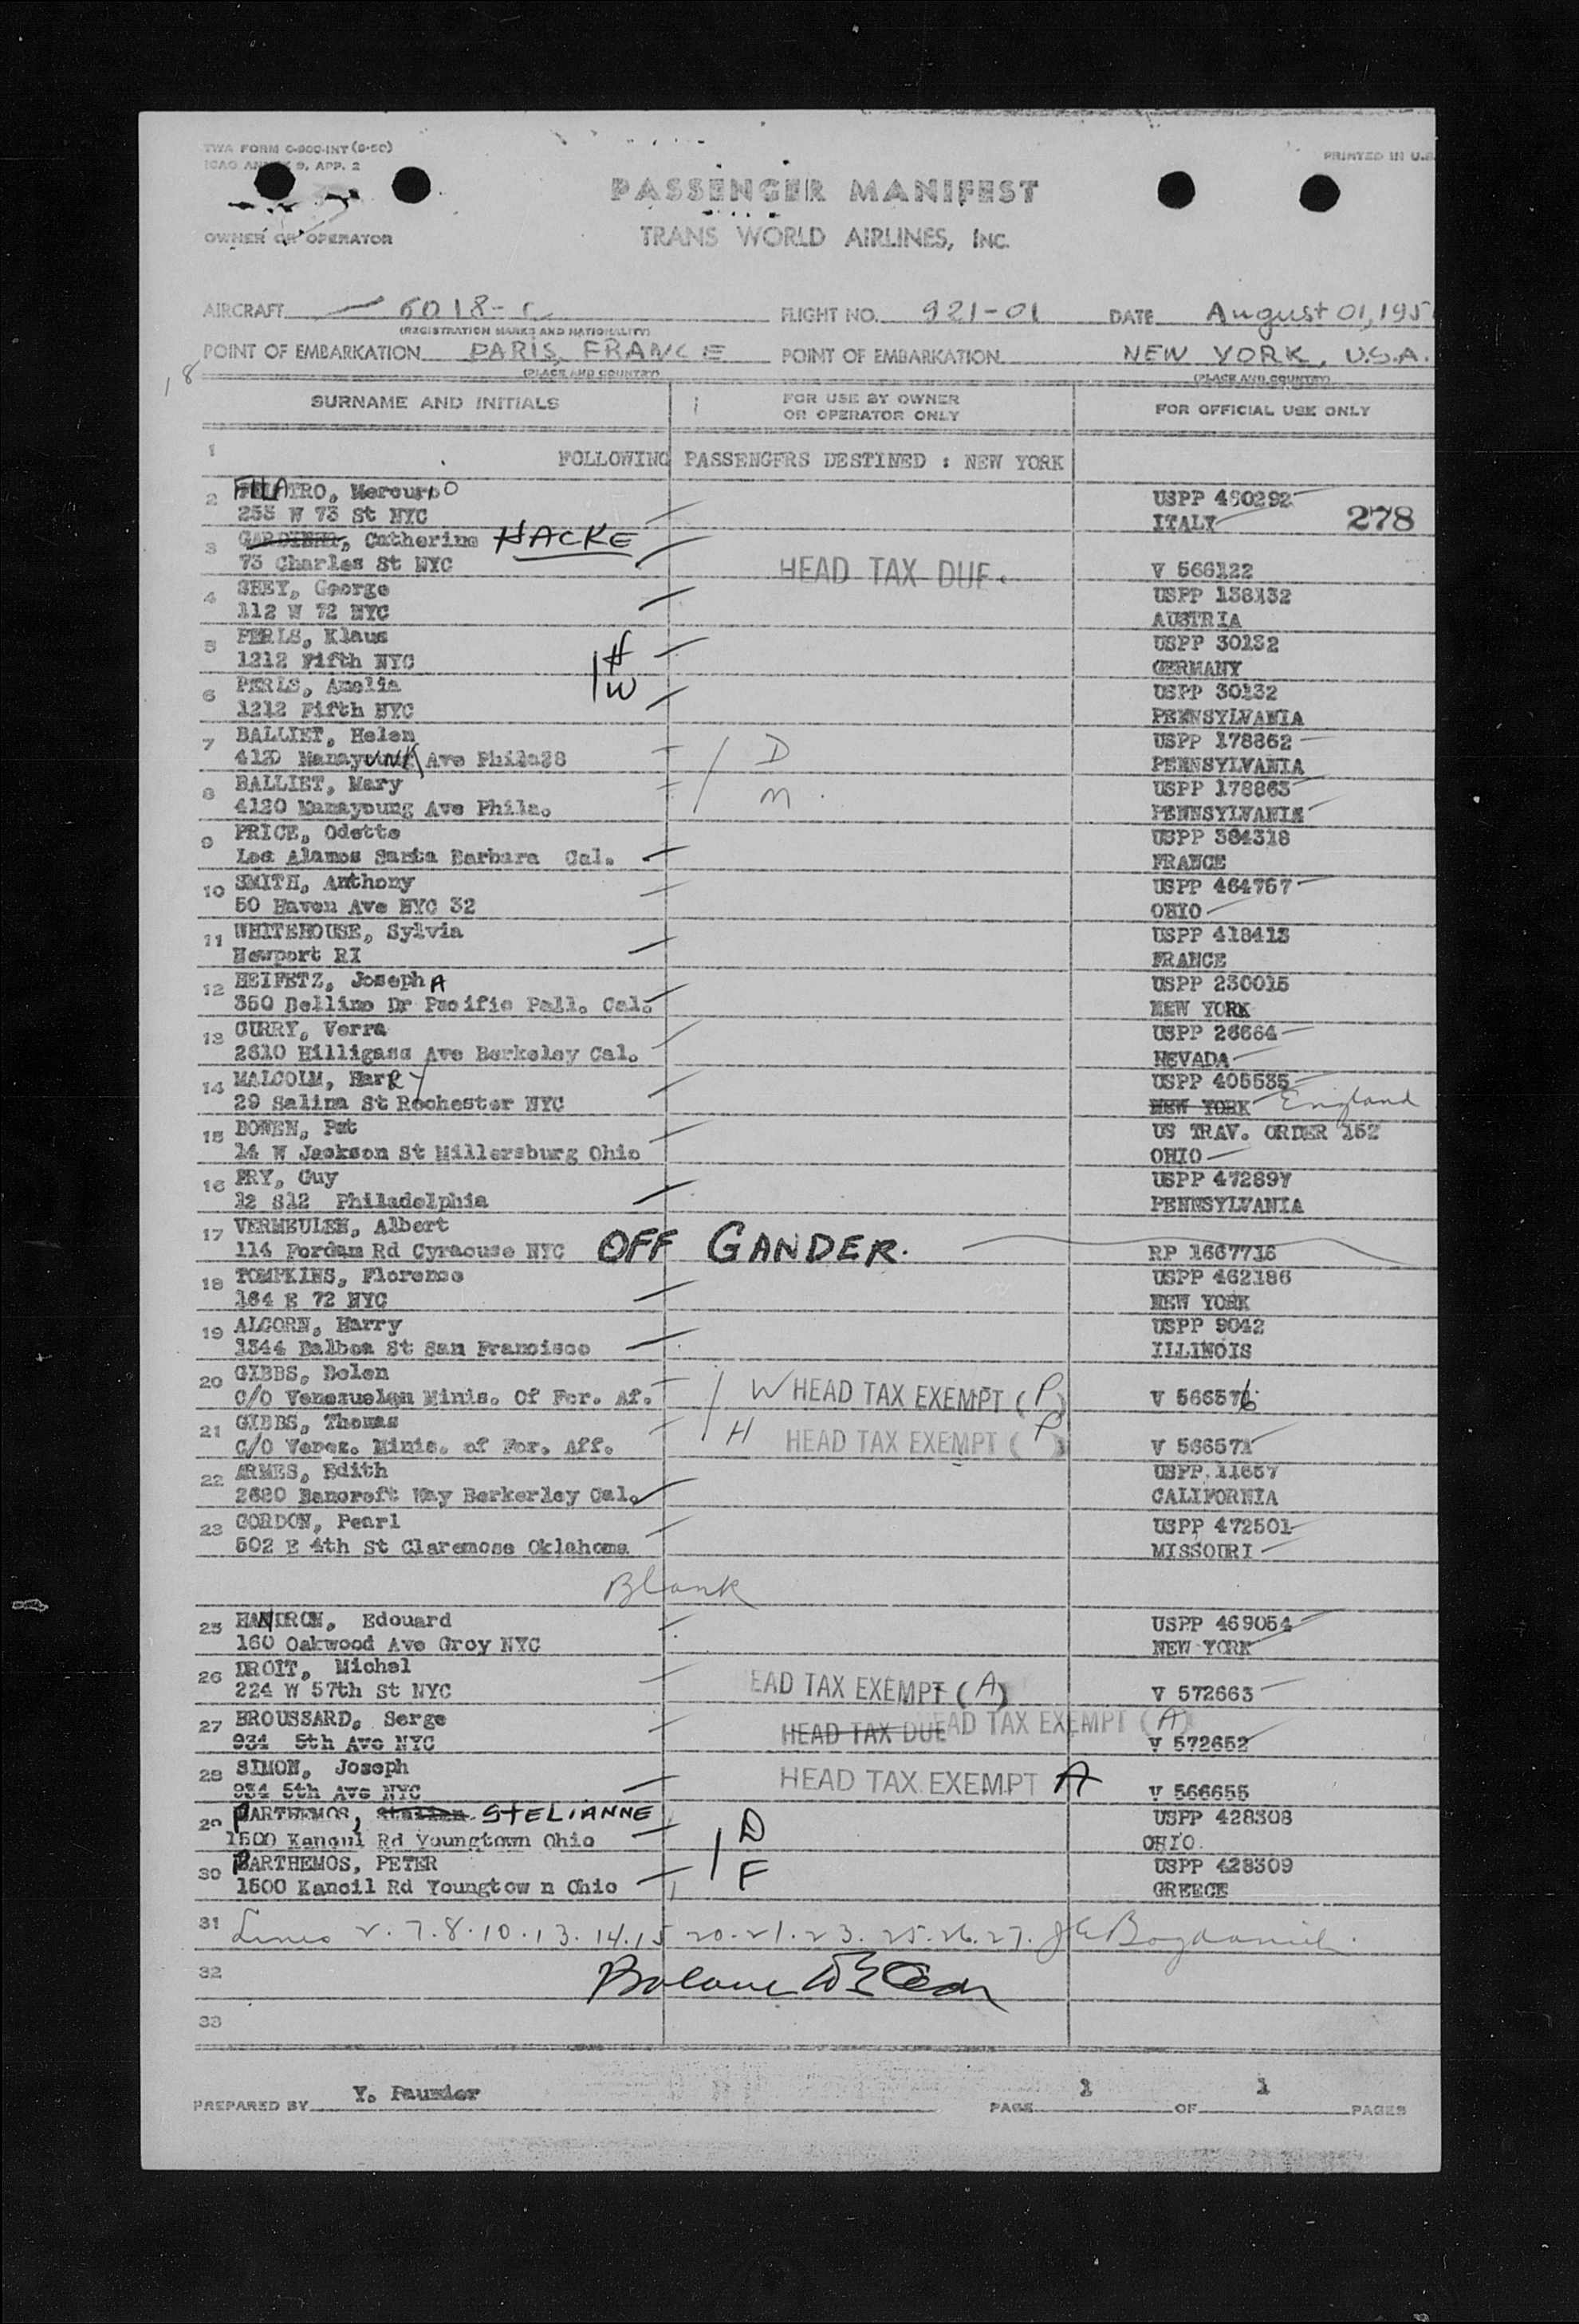 TWA FORM C-900-INT (9-50)
ICAO ANNEX 9, APP. 2
PRINTED IN U.S.
PASSENGER MANIFEST
OWNER OR OPERATOR
TRANS WORLD AIRLINES, INC.
AIRCRAFT 6018-C FLIGHT NO. 921-01 DATE August 01, 195
(REGISTRATION MARKS AND NATIONALITY)
POINT OF EMBARKATION PARIS, FRANCE POINT OF EMBARKATION NEW YORK, U.S.A.
(PLACE AND COUNTRY) (PLACE AND COUNTRY)
18
SURNAME AND INITIALS FOR USE BY OWNER OR OPERATOR ONLY FOR OFFICIAL USE ONLY
1 FOLLOWING PASSENGERS DESTINED : NEW YORK
2 FILATRO, Mercurio USPP 450292
253 W 73 St NYC ITALY 278
3 Catherine HACKE
73 Charles St NYC HEAD TAX DUE. V 566122
4 GREY, George USPP 136132
112 W 72 NYC AUSTRIA
5 PERLS, Klaus H USPP 30132
1212 Fifth NYC GERMANY
6 PERLS, Amelia W USPP 30132
1212 Fifth NYC PENNSYLVANIA
7 BALLIET, Helen D USPP 178862
4120 Manayunk Ave Phila28 PENNSYLVANIA
8 BALLIET, Mary M. USPP 178863
4120 Manayoung Ave Phila. PENNSYLVANIA
9 PRICE, Odette USPP 384318
Los Alamos Santa Barbara Cal. FRANCE
10 SMITH, Anthony USPP 464767
50 Haven Ave NYC 32 OHIO
11 WHITEHOUSE, Sylvia USPP 418413
Newport RI FRANCE
12 HEIFETZ, Joseph A USPP 230015
350 Bellino Dr Pacific Pall. Cal. NEW YORK
13 CURRY, Verra USPP 26664
2610 Hilligass Ave Berkeley Cal. NEVADA
14 MALCOLM, Harry USPP 405535
29 Salina St Rochester NYC NEW YORK England
15 BOWEN, Pat US TRAV. ORDER 152
14 W Jackson St Millersburg Ohio OHIO
16 FRY, Guy USPP 472897
12 S12 Philadelphia PENNSYLVANIA
17 VERMEULEN, Albert
114 Fordam Rd Cyracuse NYC OFF GANDER. RP 1667716
18 TOMPKINS, Florence USPP 462186
164 E 72 NYC NEW YORK
19 ALCORN, Harry USPP 9042
1344 Balboa St San Francisco ILLINOIS
20 GIBBS, Bolen
C/O Venezuelan Minis. Of For. Af. W HEAD TAX EXEMPT (P) V 566576
21 GIBBS, Thomas
C/O Venez. Minis. of For. Aff. H HEAD TAX EXEMPT (P) V 566571
22 ARMES, Edith USPP. 11657
2620 Bancroft Way Berkerley Cal. CALIFORNIA
23 GORDON, Pearl USPP 472501
502 E 4th St Claremose Oklahoma MISSOURI
Blank
25 HANDRON, Edouard USPP 469054
160 Oakwood Ave Groy NYC NEW YORK
26 DROIT, Michel
224 W 57th St NYC EAD TAX EXEMPT (A) V 572663
27 BROUSSARD, Serge
934 5th Ave NYC HEAD TAX DUE EAD TAX EXEMPT (A) V 572652
28 SIMON, Joseph
934 5th Ave NYC HEAD TAX EXEMPT A V 566655
29 PARTHEMOS, STELIANNE D USPP 428308
1500 Kanoul Rd Youngtown Ohio OHIO.
30 PARTHEMOS, PETER F USPP 428309
1500 Kanoil Rd Youngtow n Ohio GREECE
31 Lines 2. 7. 8. 10. 13. 14. 15 20. 21. 23. 25. 26. 27.
32
33
PREPARED BY Y. Paumier PAGE 1 OF 1 PAGES